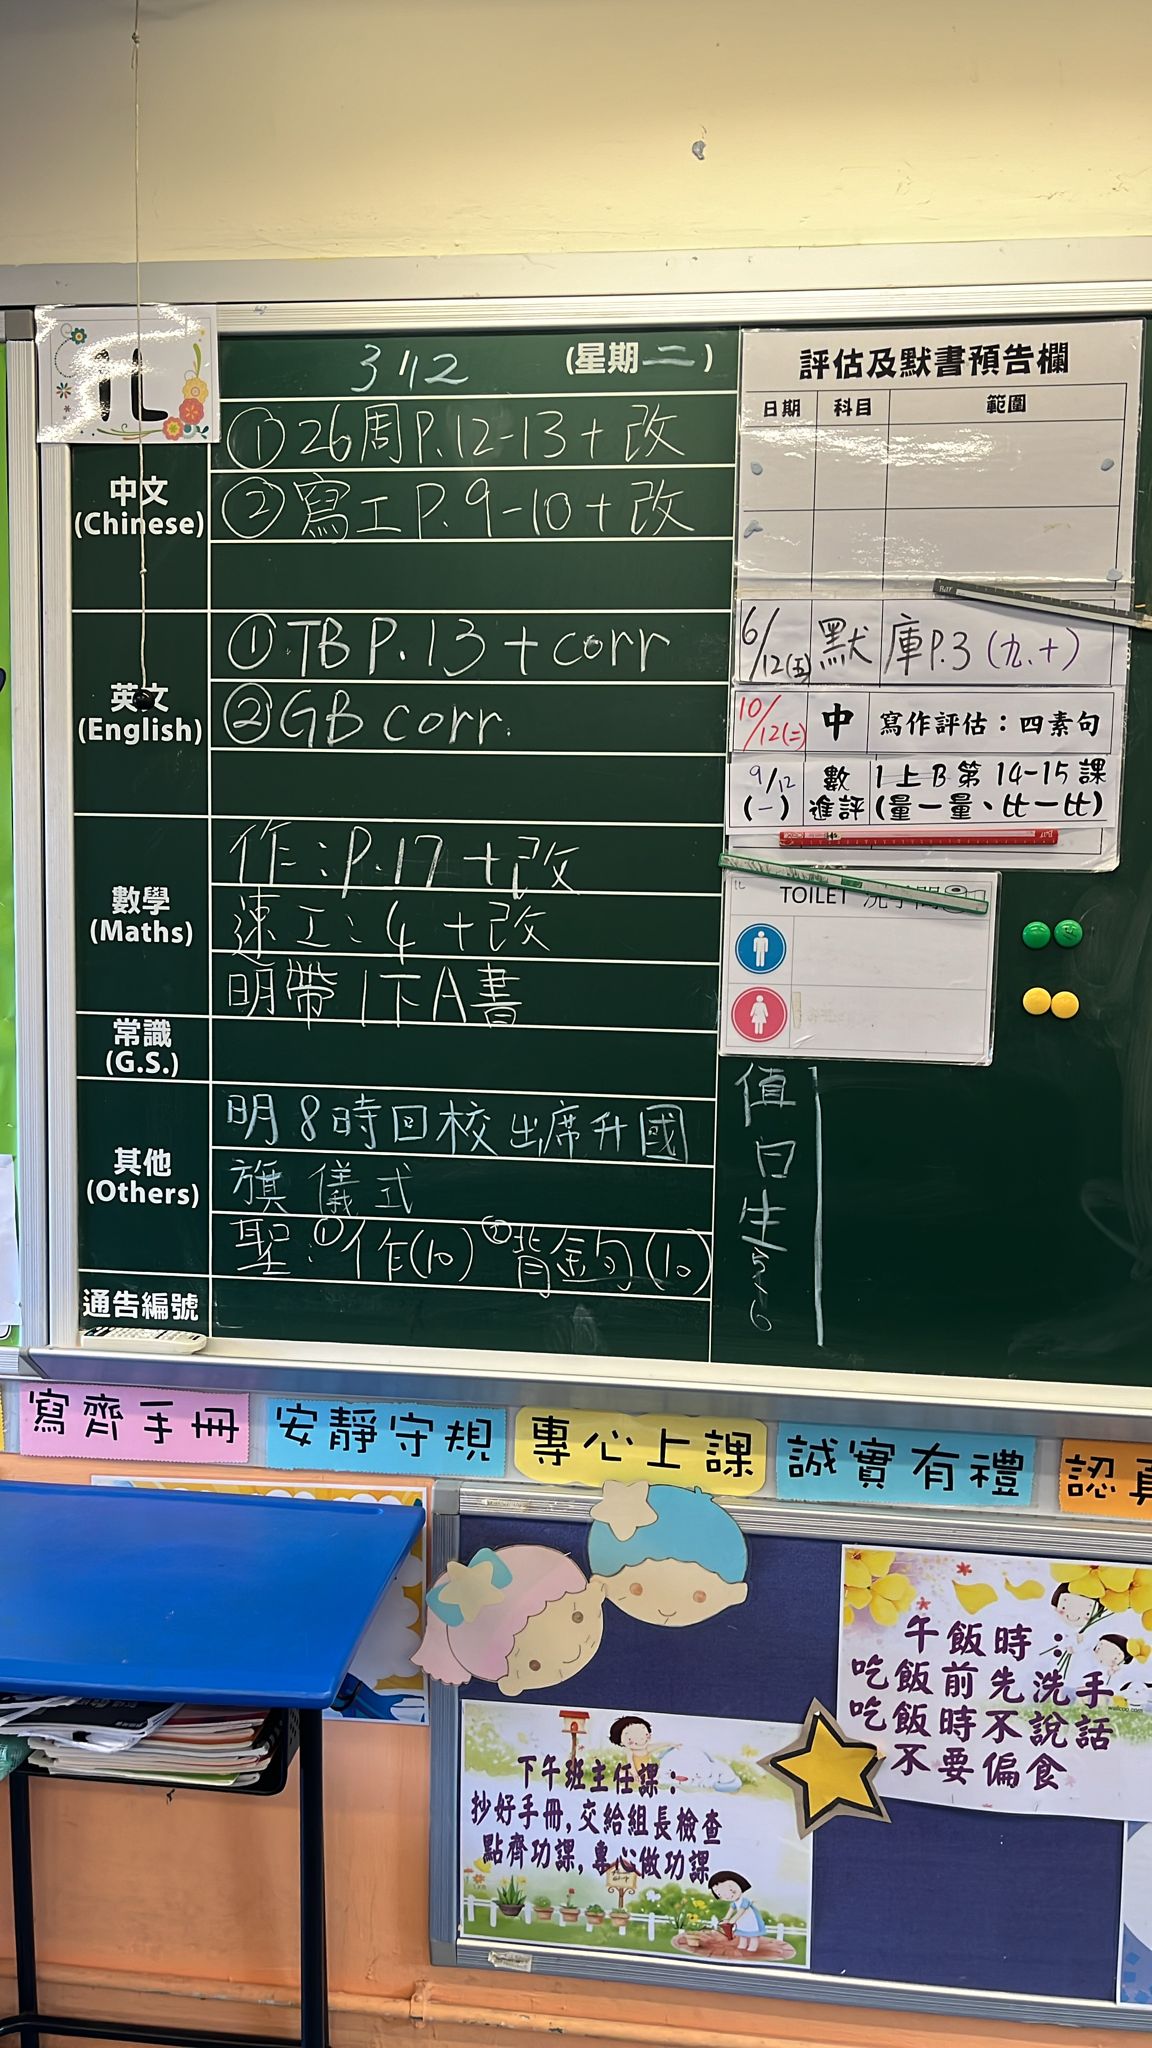 1L
3/12 (星期二)
中文
(Chinese)
①26周P.12-13+改
②寫工P.9-10+改
英文
(English)
①TB P.13+corr
②GB corr.
數學
(Maths)
作:P.17+改
速工:4+改
明帶1下A書
常識
(G.S.)
其他
(Others)
明8時回校出席升國
旗儀式
聖:①作(10) ②背金句(10)
通告編號
評估及默書預告欄
日期 科目 範圍
6/12(五) 默 庫P.3(九、十)
10/12(二) 中 寫作評估：四素句
9/12(一) 數進評 1上B第14-15課(量一量、比一比)
1L
TOILET 洗手間
值日生
5
6
寫齊手冊
安靜守規
專心上課
誠實有禮
認真
午飯時：
吃飯前先洗手
吃飯時不說話
不要偏食
下午班主任課：
抄好手冊,交給組長檢查
點齊功課,專心做功課